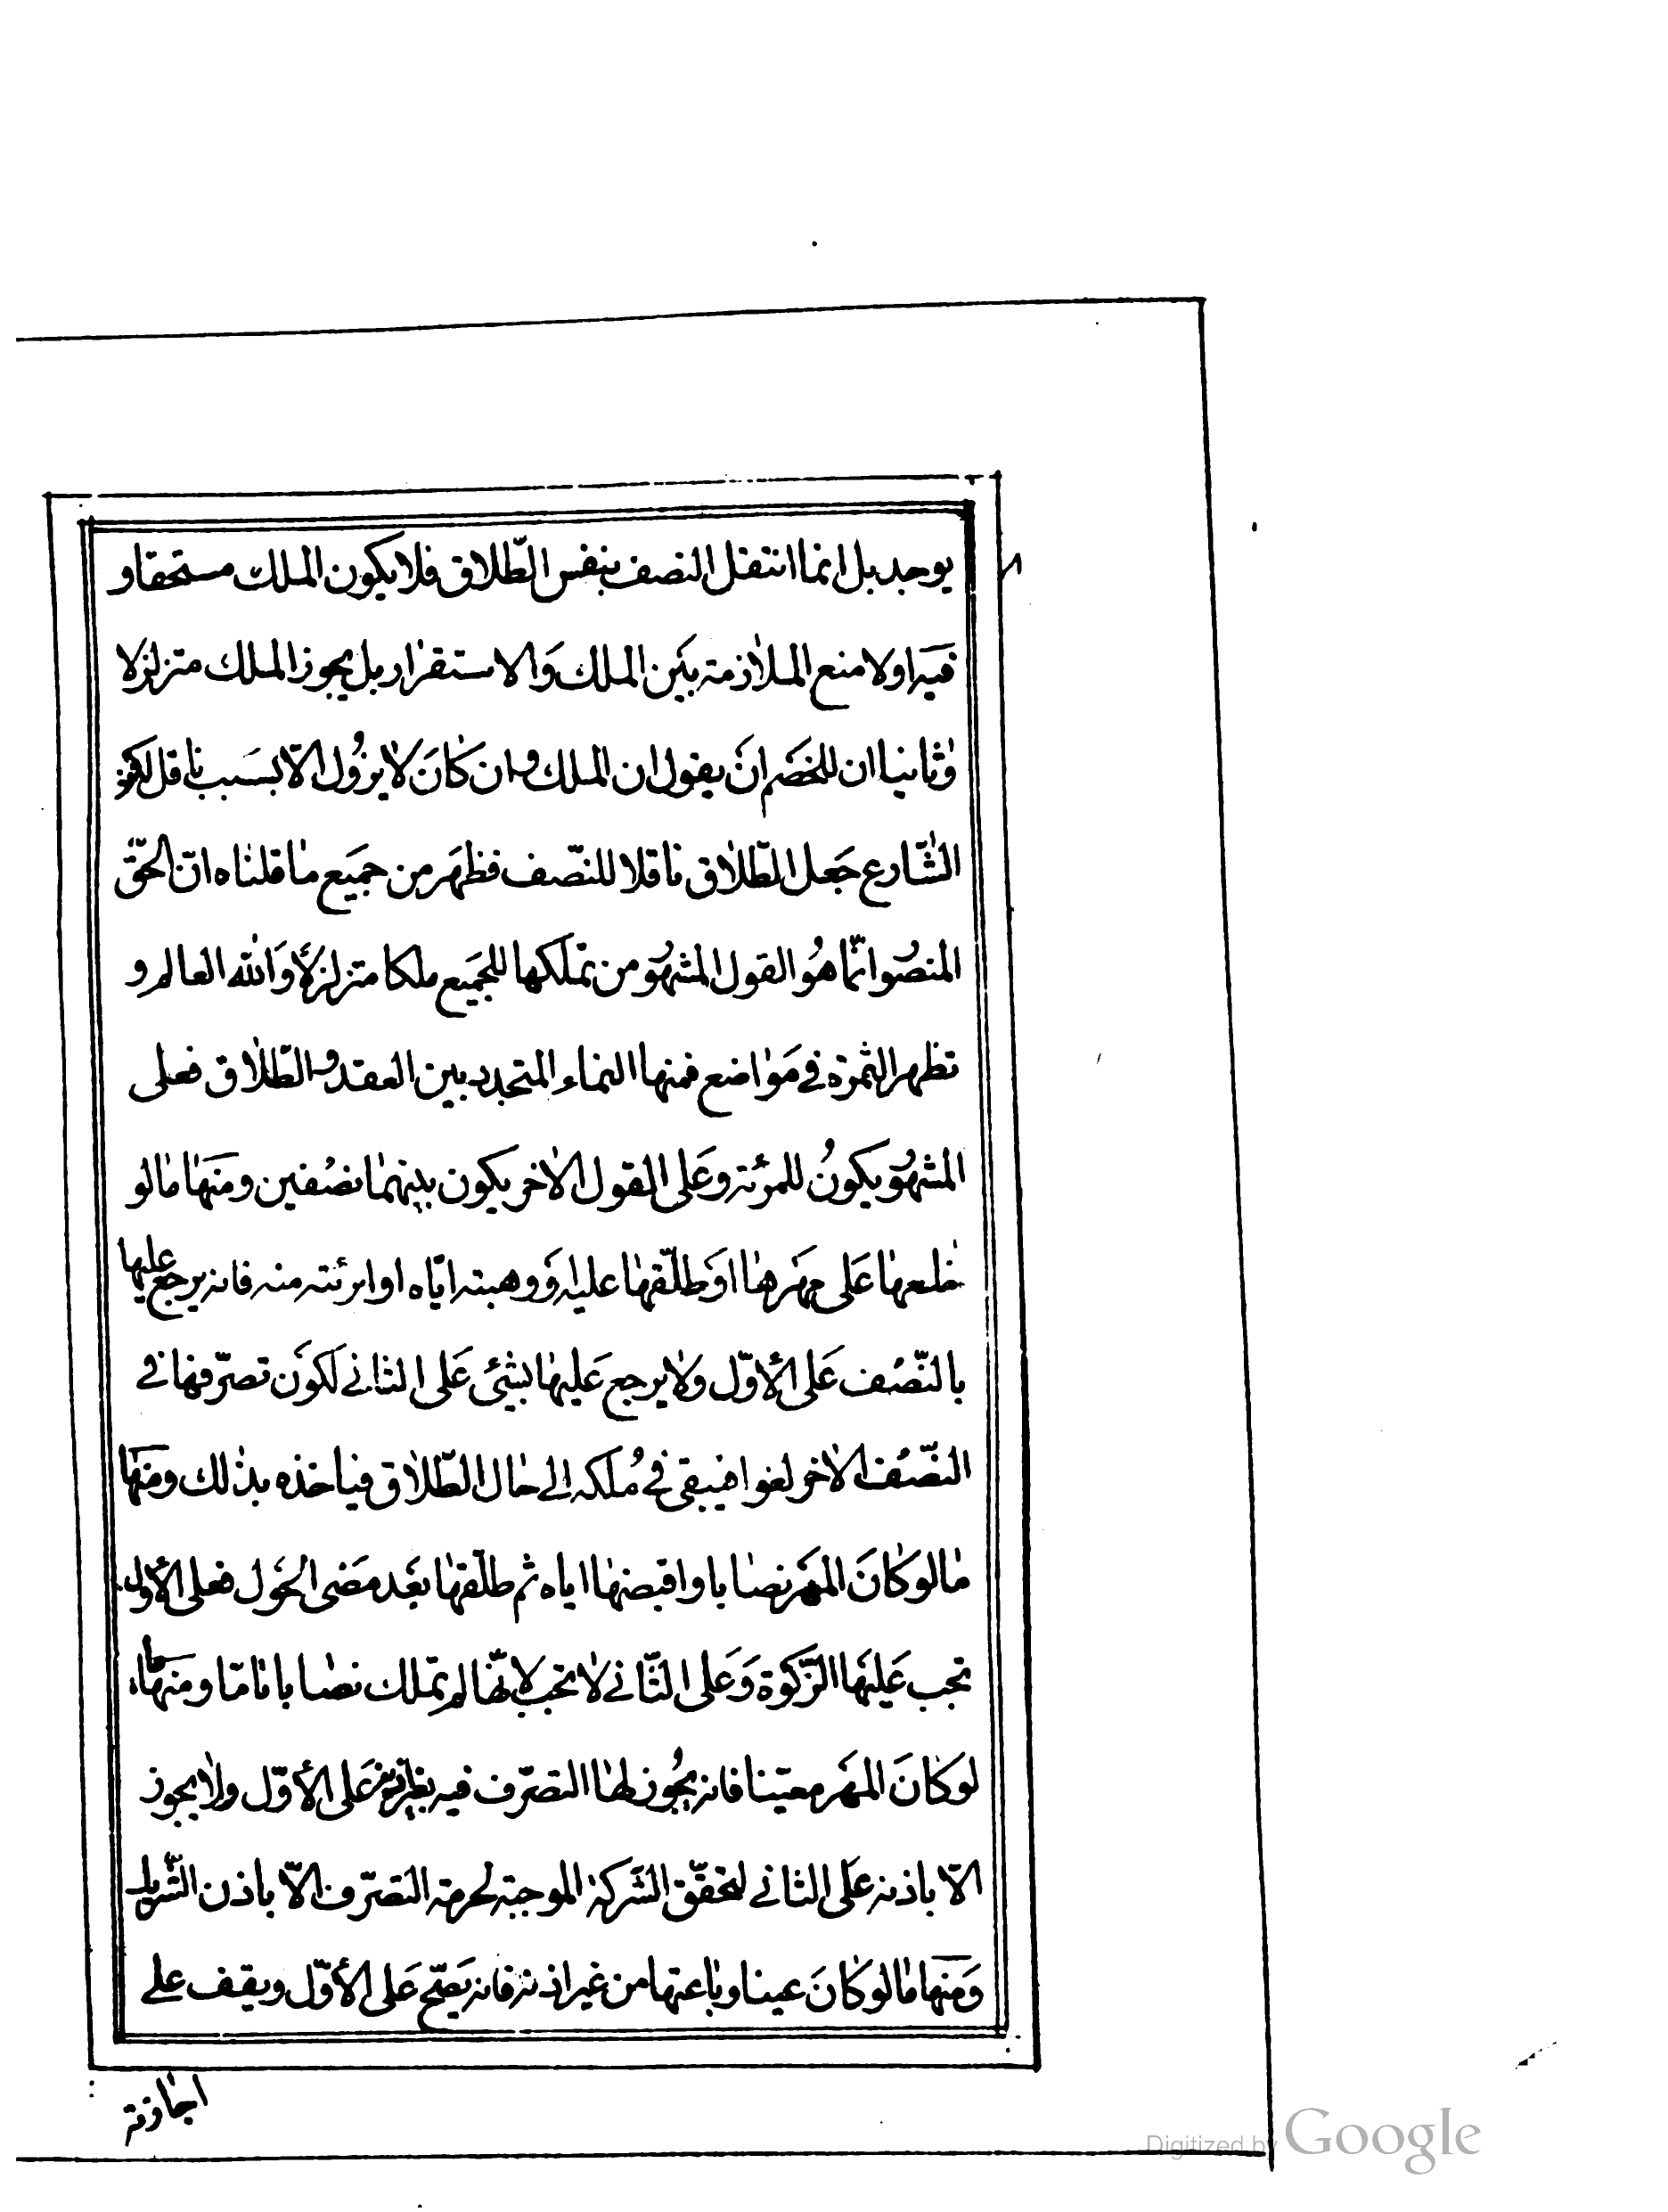 يوجد بل انما انتقل النصف بنفس الطّلاق فلا يكون الملك مستحقا و
فيه اولا منع الملازمة بين الملك والاستقرار بل يجوز الملك متزلزلا
وثانيا ان للخصم ان يقول ان الملك وان كان لا يزول الّا بسبب ناقل لكن
الشّارع جعل الطّلاق ناقلا للنصّف فظهر من جميع ما قلناه انّ الحقّ
المنصو انّما هو القول المشهو من تملكها للجميع ملكا متزلزلا والله العالم و
تظهر الثمرة في مواضع فمنها النماء المتجدد بين العقد والطّلاق فعلى
المشهو يكون للمرئة وعلى القول الاخر يكون بينهما نصفين ومنها ما لو
خلعها على مهرها او طلّقها عليه او وهبته ايّاه او ابرئته منه فانه يرجع عليها
بالنّصف على الأوّل ولا يرجع عليها بشيئ على الثاني لكون تصرّفها في
النّصف الاخر لغوا فيبقى في ملكه الى حال الطّلاق فياخذه بذلك ومنها
ما لو كان المهر نصابا واقبضها اياه ثم طلّقها بعد مضى الحول فعلى الأول
تجب عليها الزّكوة وعلى الثّاني لا تجب لانّها لم تملك نصابا تامّا ومنها ما
لو كان المهر معيّنا فانه يجوز لها التصرّف فيه بغير اذنه على الأوّل ولا يجوز
الّا باذنه على الثاني لتحقّق الشركة الموجبة لحرمة التصرّف الّا باذن الشّريك
ومنها ما لو كان عينا وباعتها من غير اذنه فانه يصّح على الأوّل ويقف على
اجازته
Digitized by Google